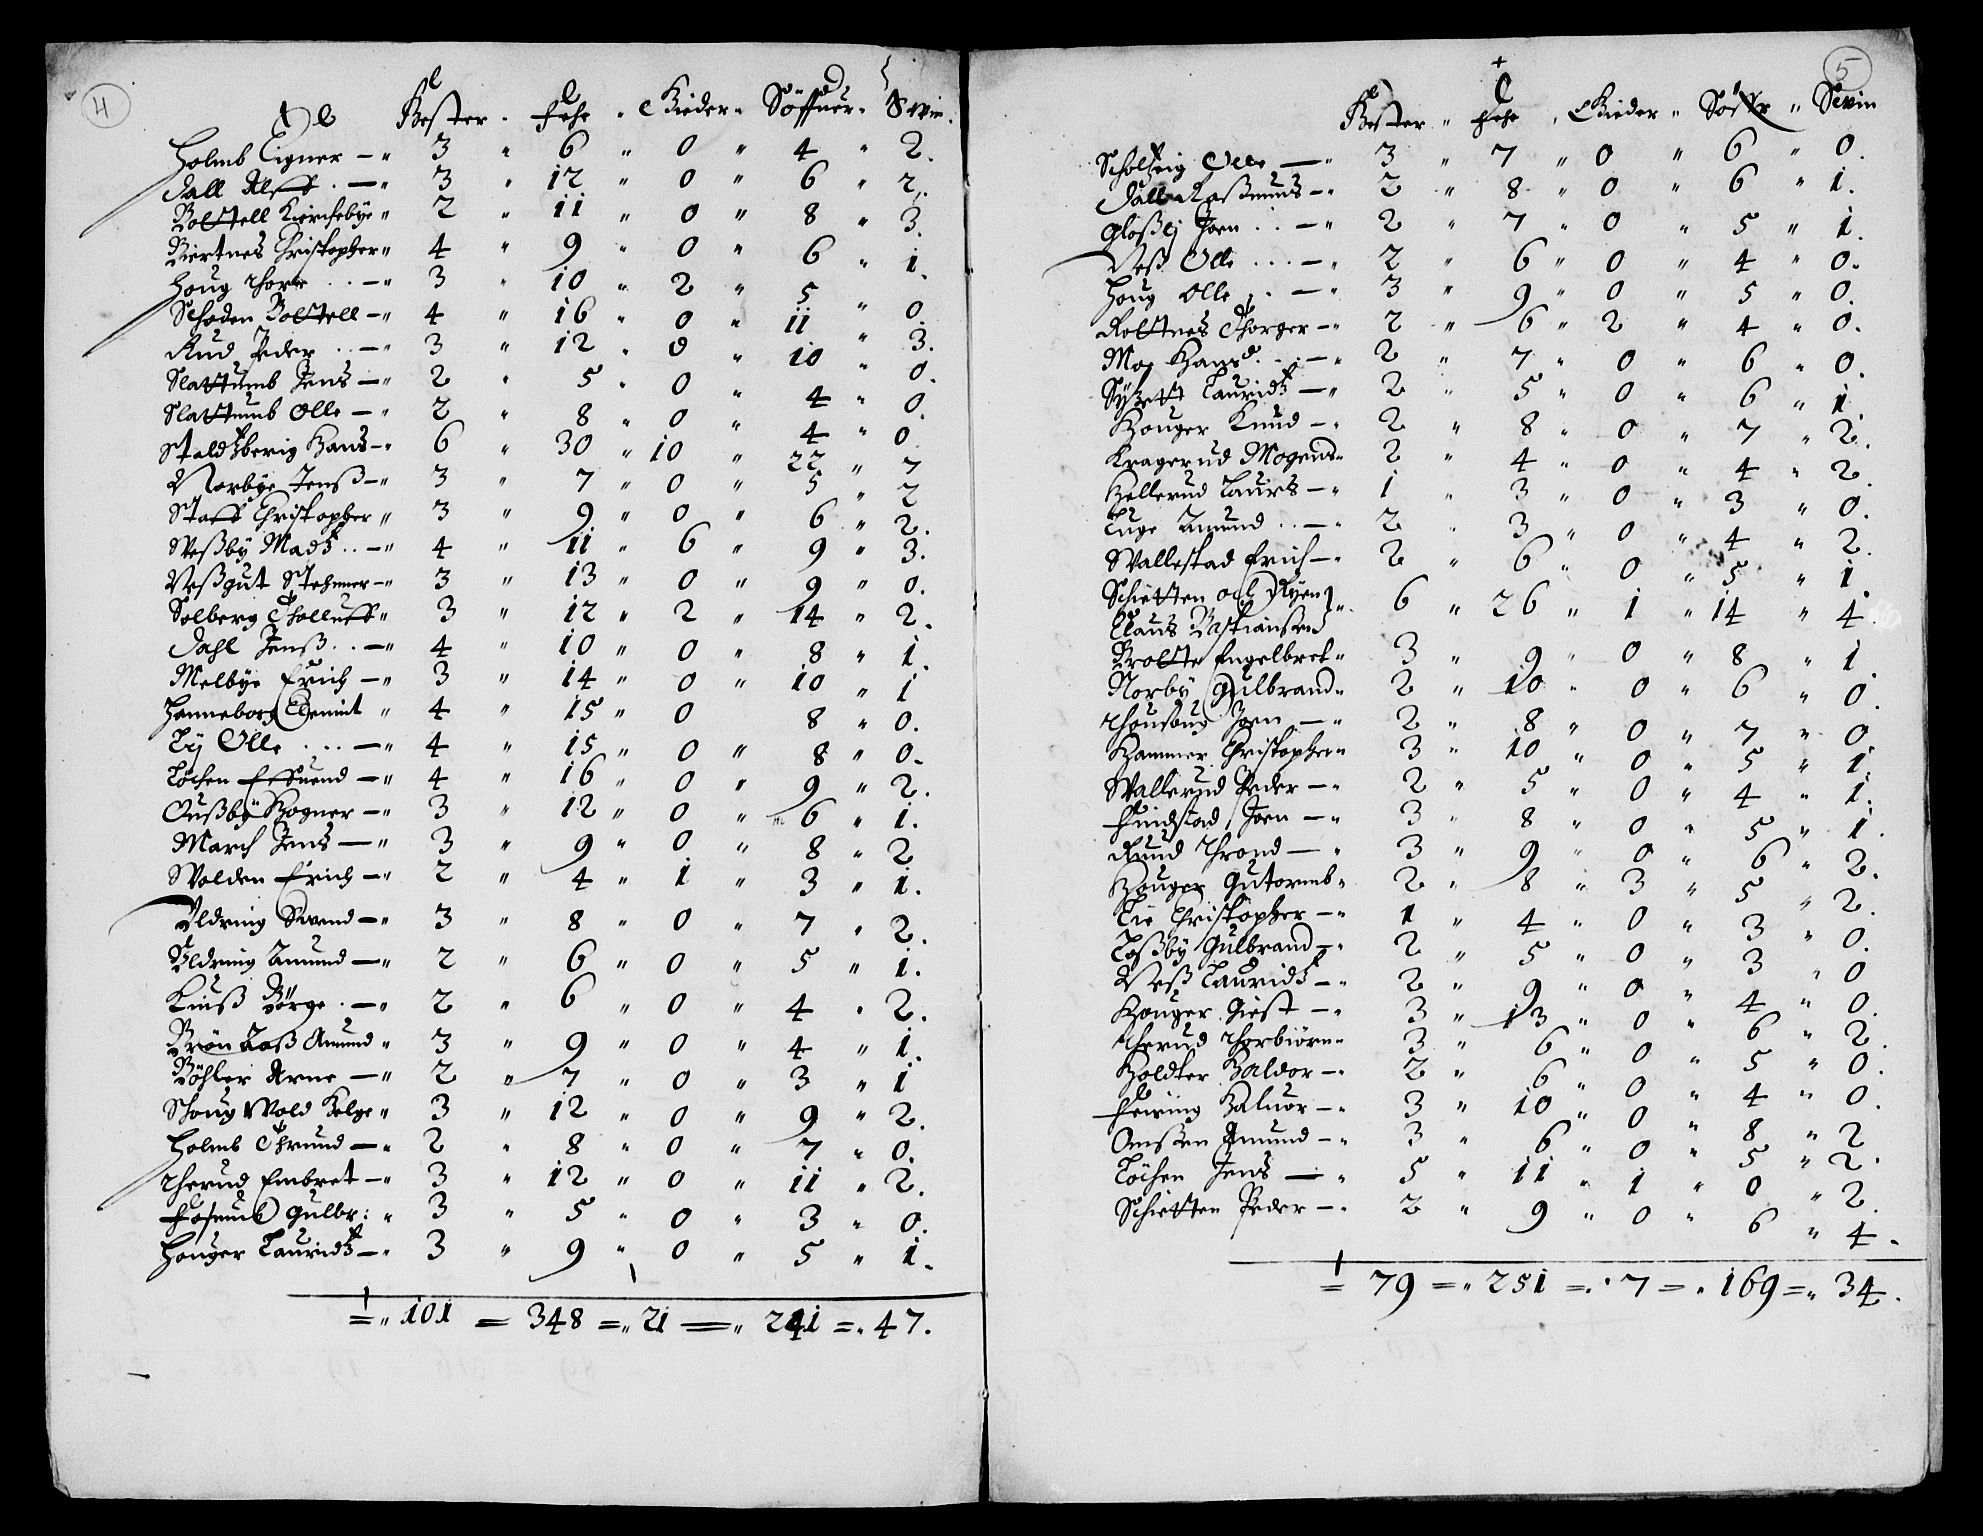 4
Hester " Fehe " Gieder " Söffuer " Swin.
Holmb Eigner — " 3 " 6 " 0 " 4 " 2.
Dall Alff . — " 3 " 12 " 0 " 6 " 2.
Bolstell Kirchebÿe " 2 " 11 " 0 " 8 " 3.
Biertnes Christopher " 4 " 9 " 0 " 6 " 1.
Houg Thore . . — " 3 " 10 " 2 " 5 " 0.
Schoden Bolstell — " 4 " 16 " 0 " 11 " 3.
Rud Peder . . — " 3 " 12 " 0 " 10 " 0.
Slattumb Jens — " 2 " 5 " 0 " 4 " 0.
Slattumb Olle — " 2 " 8 " 0 " 4 " 0
Staldtzberig Hans — " 6 " 30 " 10 " 22 " 7
Norbÿe Jenß — " 3 " 7 " 0 " 5 " 2
Staff Christopher " 3 " 9 " 0 " 6 " 2.
Weßbÿ Madtz . . — " 4 " 11 " 6 " 9 " 3.
Neßgut Stehnner — " 3 " 13 " 0 " 9 " 0.
Solberg Tholluff " 3 " 12 " 2 " 14 " 2.
Dahl Jenß . . — " 4 " 10 " 0 " 8 " 1.
Melbÿe Erich — " 3 " 14 " 0 " 10 " 1
Hanneborg Clemint " 4 " 15 " 0 8 " 0.
Lÿ Olle . . . — " 4 " 15 " 0 " 8 " 0.
Löchen Effuend — " 4 " 16 " 0 " 9 " 2.
Ousßbÿ Hogner — " 3 " 12 " 0 " 6 " 1.
March Jens — " 3 " 9 " 0 " 8 " 2
Wolden Erich — " 2 " 4 " 1 " 3 " 1.
Uldring Swend — " 3 " 8 " 0 " 7 " 2.
Uldring Amund — " 2 " 6 " 0 " 5 " 1.
Kiuß Börge . — " 2 " 6 " 0 " 4 " 2.
Brön Laß Amund " 3 " 9 " 0 " 4 " 1.
Böhler Arne — " 2 " 7 " 0 " 3 " 1
Schoug Wold Helge " 3 " 12 " 0 " 9 " 2.
Holmb Thrund — " 2 " 8 " 0 " 7 " 0.
Therud Embret — " 3 " 12 " 0 " 11 " 2.
Foßumb Gulbr: " 3 " 5 " 0 " 3 " 0.
Houger Lauridtz — " 3 " 9 " 0 " 5 " 1.
= " 101 = 348 = " 21 = " 241 = " 47.
5
Hester " Fehe " Gieder " Söffr " Swin
Scholtzig Olle — " 3 " 7 " 0 " 6 " 0.
Dall Raßmuus — " 2 " 8 " 0 " 6 " 1.
Gloßlj Joen . . — " 2 " 7 " 0 " 5 " 1.
Neß Olle . . . — " 2 " 6 " 0 " 4 " 0.
Houg Olle . . — " 3 " 9 " 0 " 5 " 0.
Rolstnes Thorger — " 2 " 6 " 2 " 4 " 0.
Moj Hans . . — " 2 " 7 " 0 " 6 " 0.
Sÿzett Lauridtz — " 2 " 5 " 0 " 6 " 1.
Houger Knud — " 2 " 8 " 0 " 7 " 2.
Kragerud Mogens " 2 " 4 " 0 " 4 " 2.
Hellerud Laurs — " 1 " 3 " 0 " 3 " 0.
Luge Amund . . — " 2 " 3 " 0 " 4 " 2.
Wallestad Erich — " 2 " 6 " 0 " 5 " 1.
Schietten och Ryen
Claus Bastianßen " 6 " 26 " 1 " 14 " 4
Brolste Engelbret " 3 " 9 " 0 " 8 " 1
Norbÿ Gulbrand " 2 " 10 " 0 " 6 " 0
Thousoug Joen — " 2 " 8 " 0 " 7 " 0
Hammer Christopher " 3 " 10 " 0 " 5 " 1.
Wallerud Peder — " 2 " 5 " 0 " 4 " 1.
Findstad Joen — " 3 " 8 " 0 " 5 " 1.
Ruud Thrond — " 3 " 9 " 0 " 6 " 2.
Houger Gutormb " 2 " 8 " 3 " 5 " 2.
Lie Christopher — " 1 " 4 " 0 " 3 " 0.
Loßbÿ Gulbrand — " 2 " 5 " 0 " 3 " 0
Neß Lauridtz — " 2 " 9 " 0 " 4 " 0.
Houger Giest — " 3 " 13 " 0 " 6 " 2.
Therud Thorbiörn " 3 " 6 " 0 " 5 " 0.
Holdter Haldor — " 2 " 6 " 0 " 4 " 0.
Feiring Haluor — " 3 " 10 " 0 " 8 " 2
Omßen Amund — " 3 " 6 " 0 " 5 " 2.
Löchen Jens — " 5 " 11 " 1 " 0 " 2
Schietten Peder — " 2 " 9 " 0 " 6 " 4.
= 79 = " 251 = " 7 = " 169 = " 34.